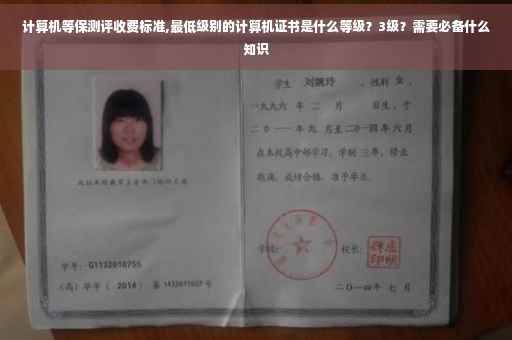 计算机等保测评收费标准,最低级别的计算机证书是什么等级？3级？需要必备什么
知识
学生 刘婉玲 ，性别 女 ，
一九九六 年 二 月 日生，于
二〇一一年九 月至二〇一四年六月
在本校高中部学习，学制 三年，修业
期满，成绩合格，准予毕业。
学校： 校长：
学号：G1132010755
（高）毕字（ 2014 ）第 1432011027 号
二〇一四年 七 月